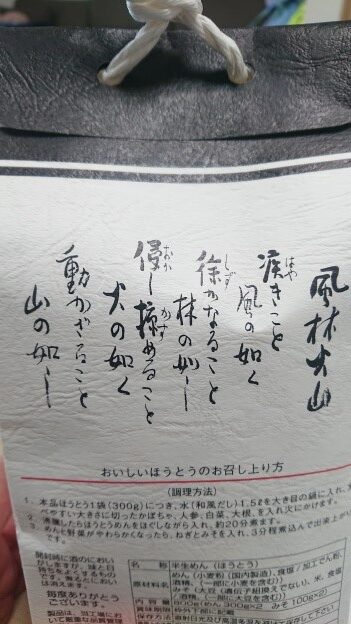 風林火山
疾きこと
風の如く
徐かなること
林の如し
侵し掠めること
火の如く
動かざること
山の如し
おいしいほうとうのお召し上り方
(調理方法)
1. 本品ほうとう1袋(300g)につき、水(和風だし)1.5ℓを大き目の鍋に入れ、
べやすい大きさに切ったかぼちゃ、人参、白菜、大根、を入れ火にかけます。
2. 沸騰したらほうとうめんをほぐしながら入れ、約20分煮ます。
3. めんと野菜がやわらかくなったら、ねぎとみそを入れ、3分程煮込んで出来上が
です。
毎度ありがとう
ございます。
名 称 半生めん(ほうとう)
原材料名 めん(小麦粉(国内製造)、食塩/加工でん粉、
酒精、(一部に小麦を含む))
みそ(大豆(遺伝子組換えでない)、米、食塩
/酒精、(一部に大豆を含む))
内容量 800g(めん300g×2 みそ100g×2)
賞味期限 枠外下部に記載
保存方法 直射日光及び高温多湿を避けて保存して下さい